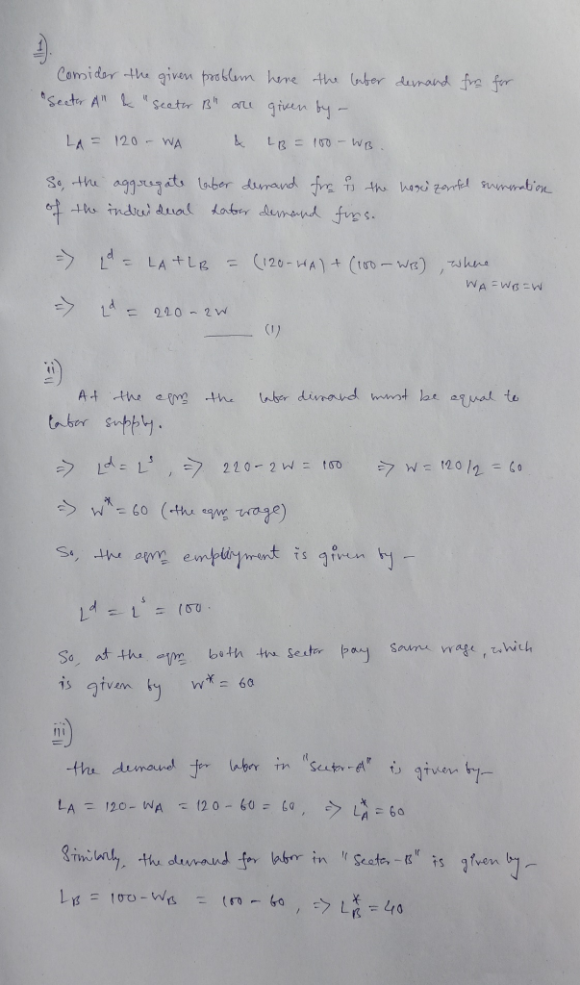 1).
Consider the given problem here the labor demand fns for
"Sector A" & "sector B" are given by –
LA = 120 - WA & LB = 100 - WB.
So, the aggregate labor demand fns is the horizontal summation
of the individual labor demand funs.
=> Lᵈ = LA + LB = (120 - WA) + (100 - WB), where
WA = WB = W
=> Lᵈ = 220 - 2W
——— (1)
ii)
At the eqm the labor demand must be equal to
labor supply.
=> Lᵈ = Lˢ, => 220 - 2W = 100 => W = 120/2 = 60
=> W* = 60 (the eqm wage)
So, the eqm employment is given by –
Lᵈ = Lˢ = 100.
So, at the eqm both the sector pay same wage, which
is given by W* = 60
iii)
the demand for labor in "Sector-A" is given by –
LA = 120 - WA = 120 - 60 = 60, => L*A = 60
Similarly, the demand for labor in "Sector-B" is given by –
LB = 100 - WB = 100 - 60, => L*B = 40